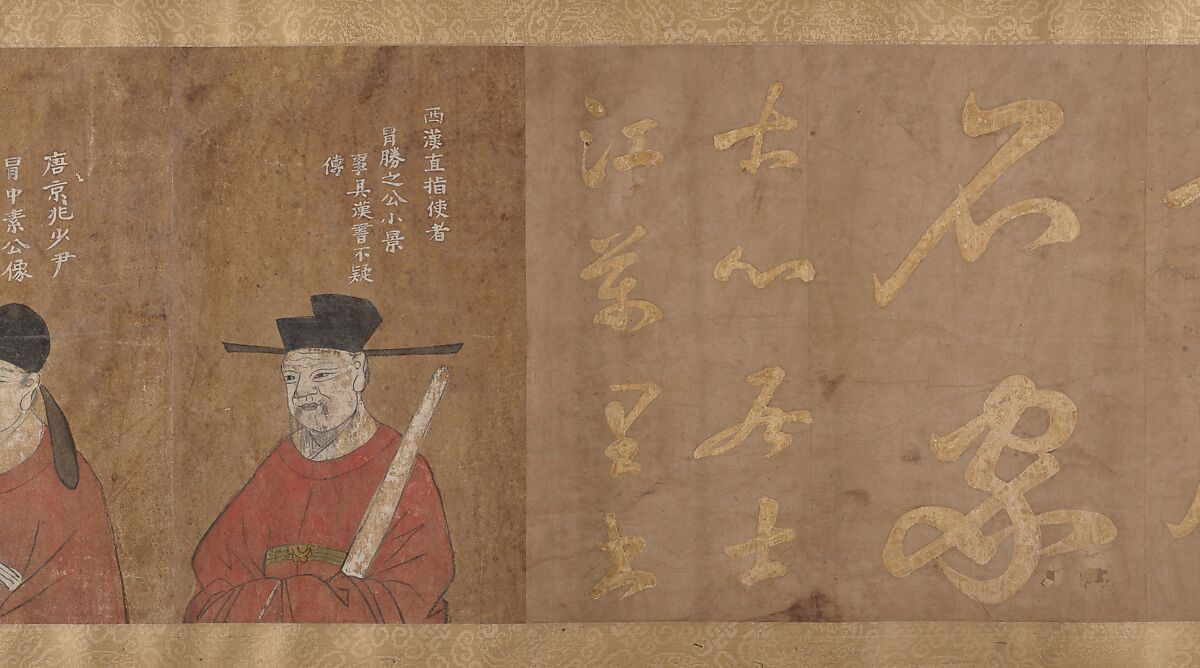 名家
古心居士
江萬里書
西漢直指使者
冒勝之公小景
事具漢書不疑
傳
唐京兆少尹
冒中素公像